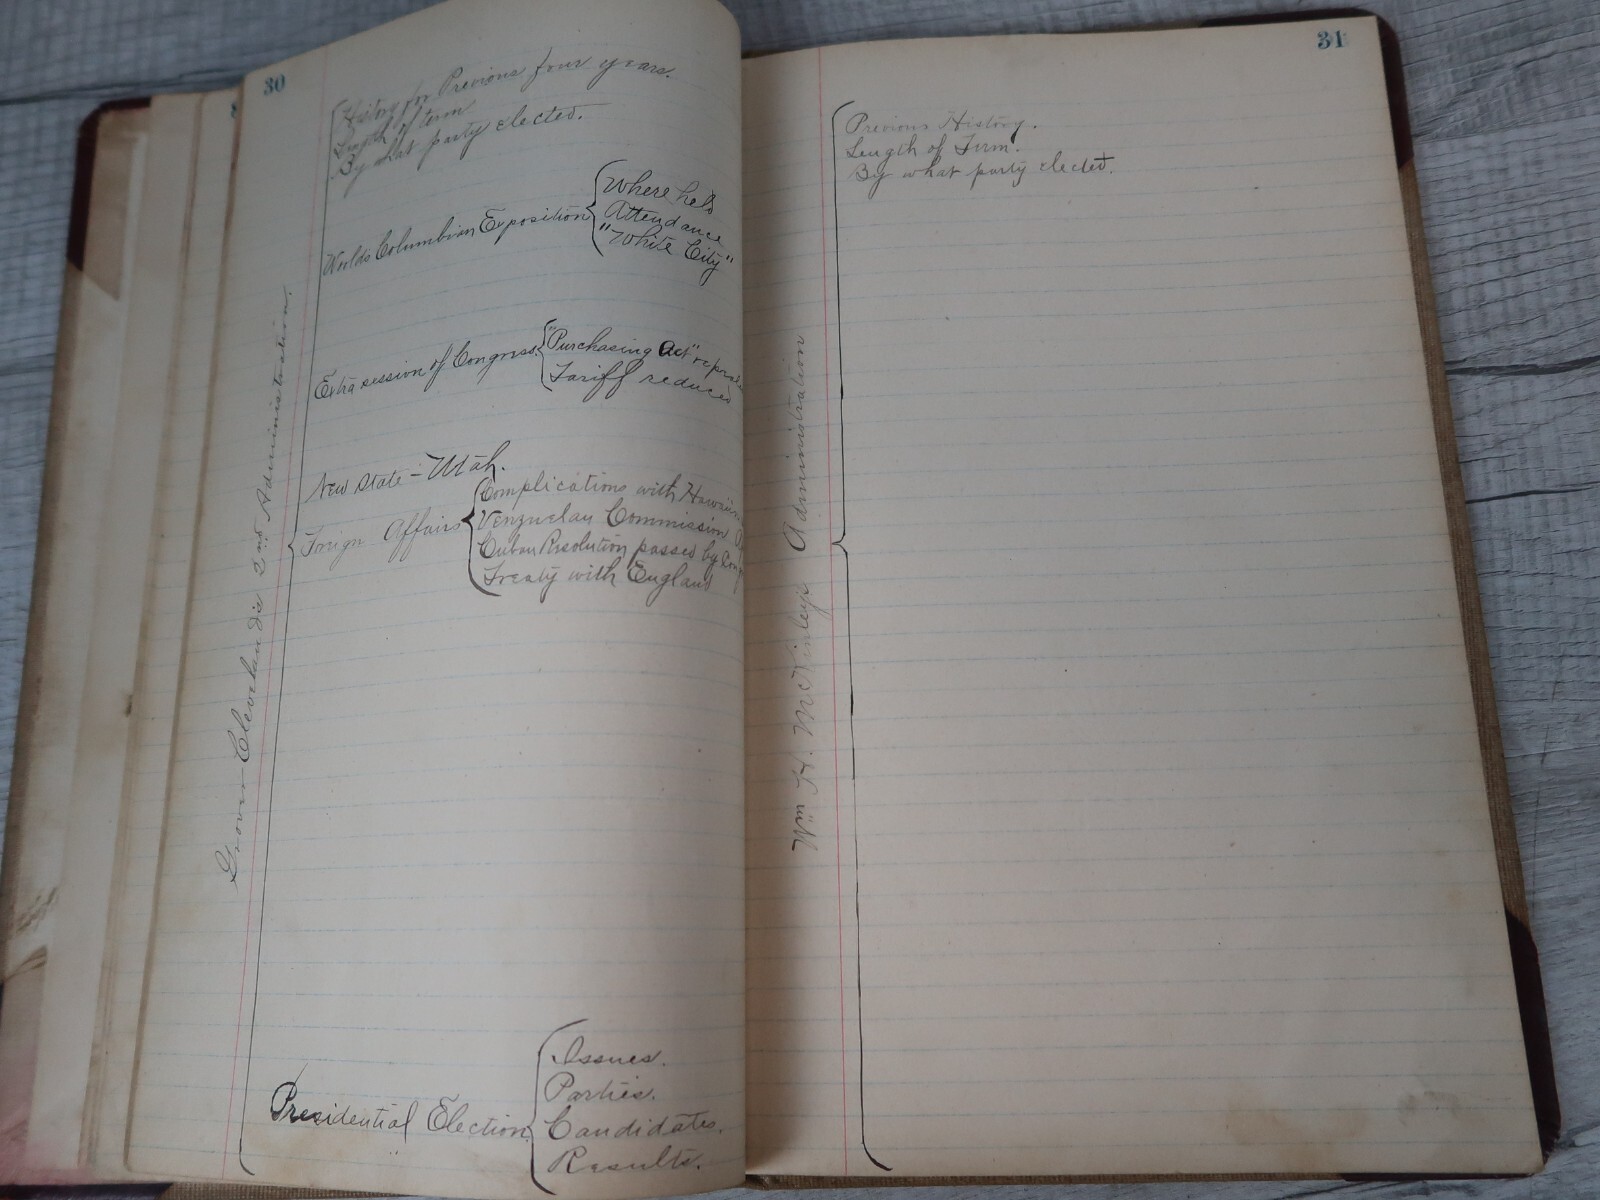 30
History for Previous four years.
Length of term
By what party elected.
Worlds Columbian Exposition
Where held
Attendance
"White City"
Extra session of Congress
"Purchasing Act"
Tariff reduced
New State - Utah.
Foreign Affairs
Complications with
Venzuelan Commission
Cuban Resolution passed by
Treaty with England
Presidential Election
Issues.
Parties.
Candidates.
Results.
Grover 2nd Administration.
31
Previous History.
Length of Term.
By what party elected.
Wm H. McKinleys Administration